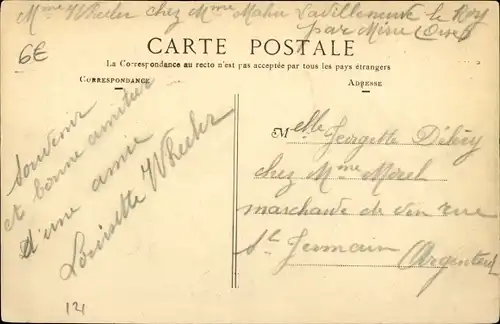 Mme Wheeler chez Mme Mahu Lavilleneuve le Roy
par Méru (Oise)
6E
CARTE POSTALE
La Correspondance au recto n'est pas acceptée par tous les pays étrangers
CORRESPONDANCE
ADRESSE
Souvenir
et bonne amitié
d'une amie
Louisette Wheeler
Melle Georgette
chez Mme Morel
marchande de vin rue
St Germain
Argenteuil
121